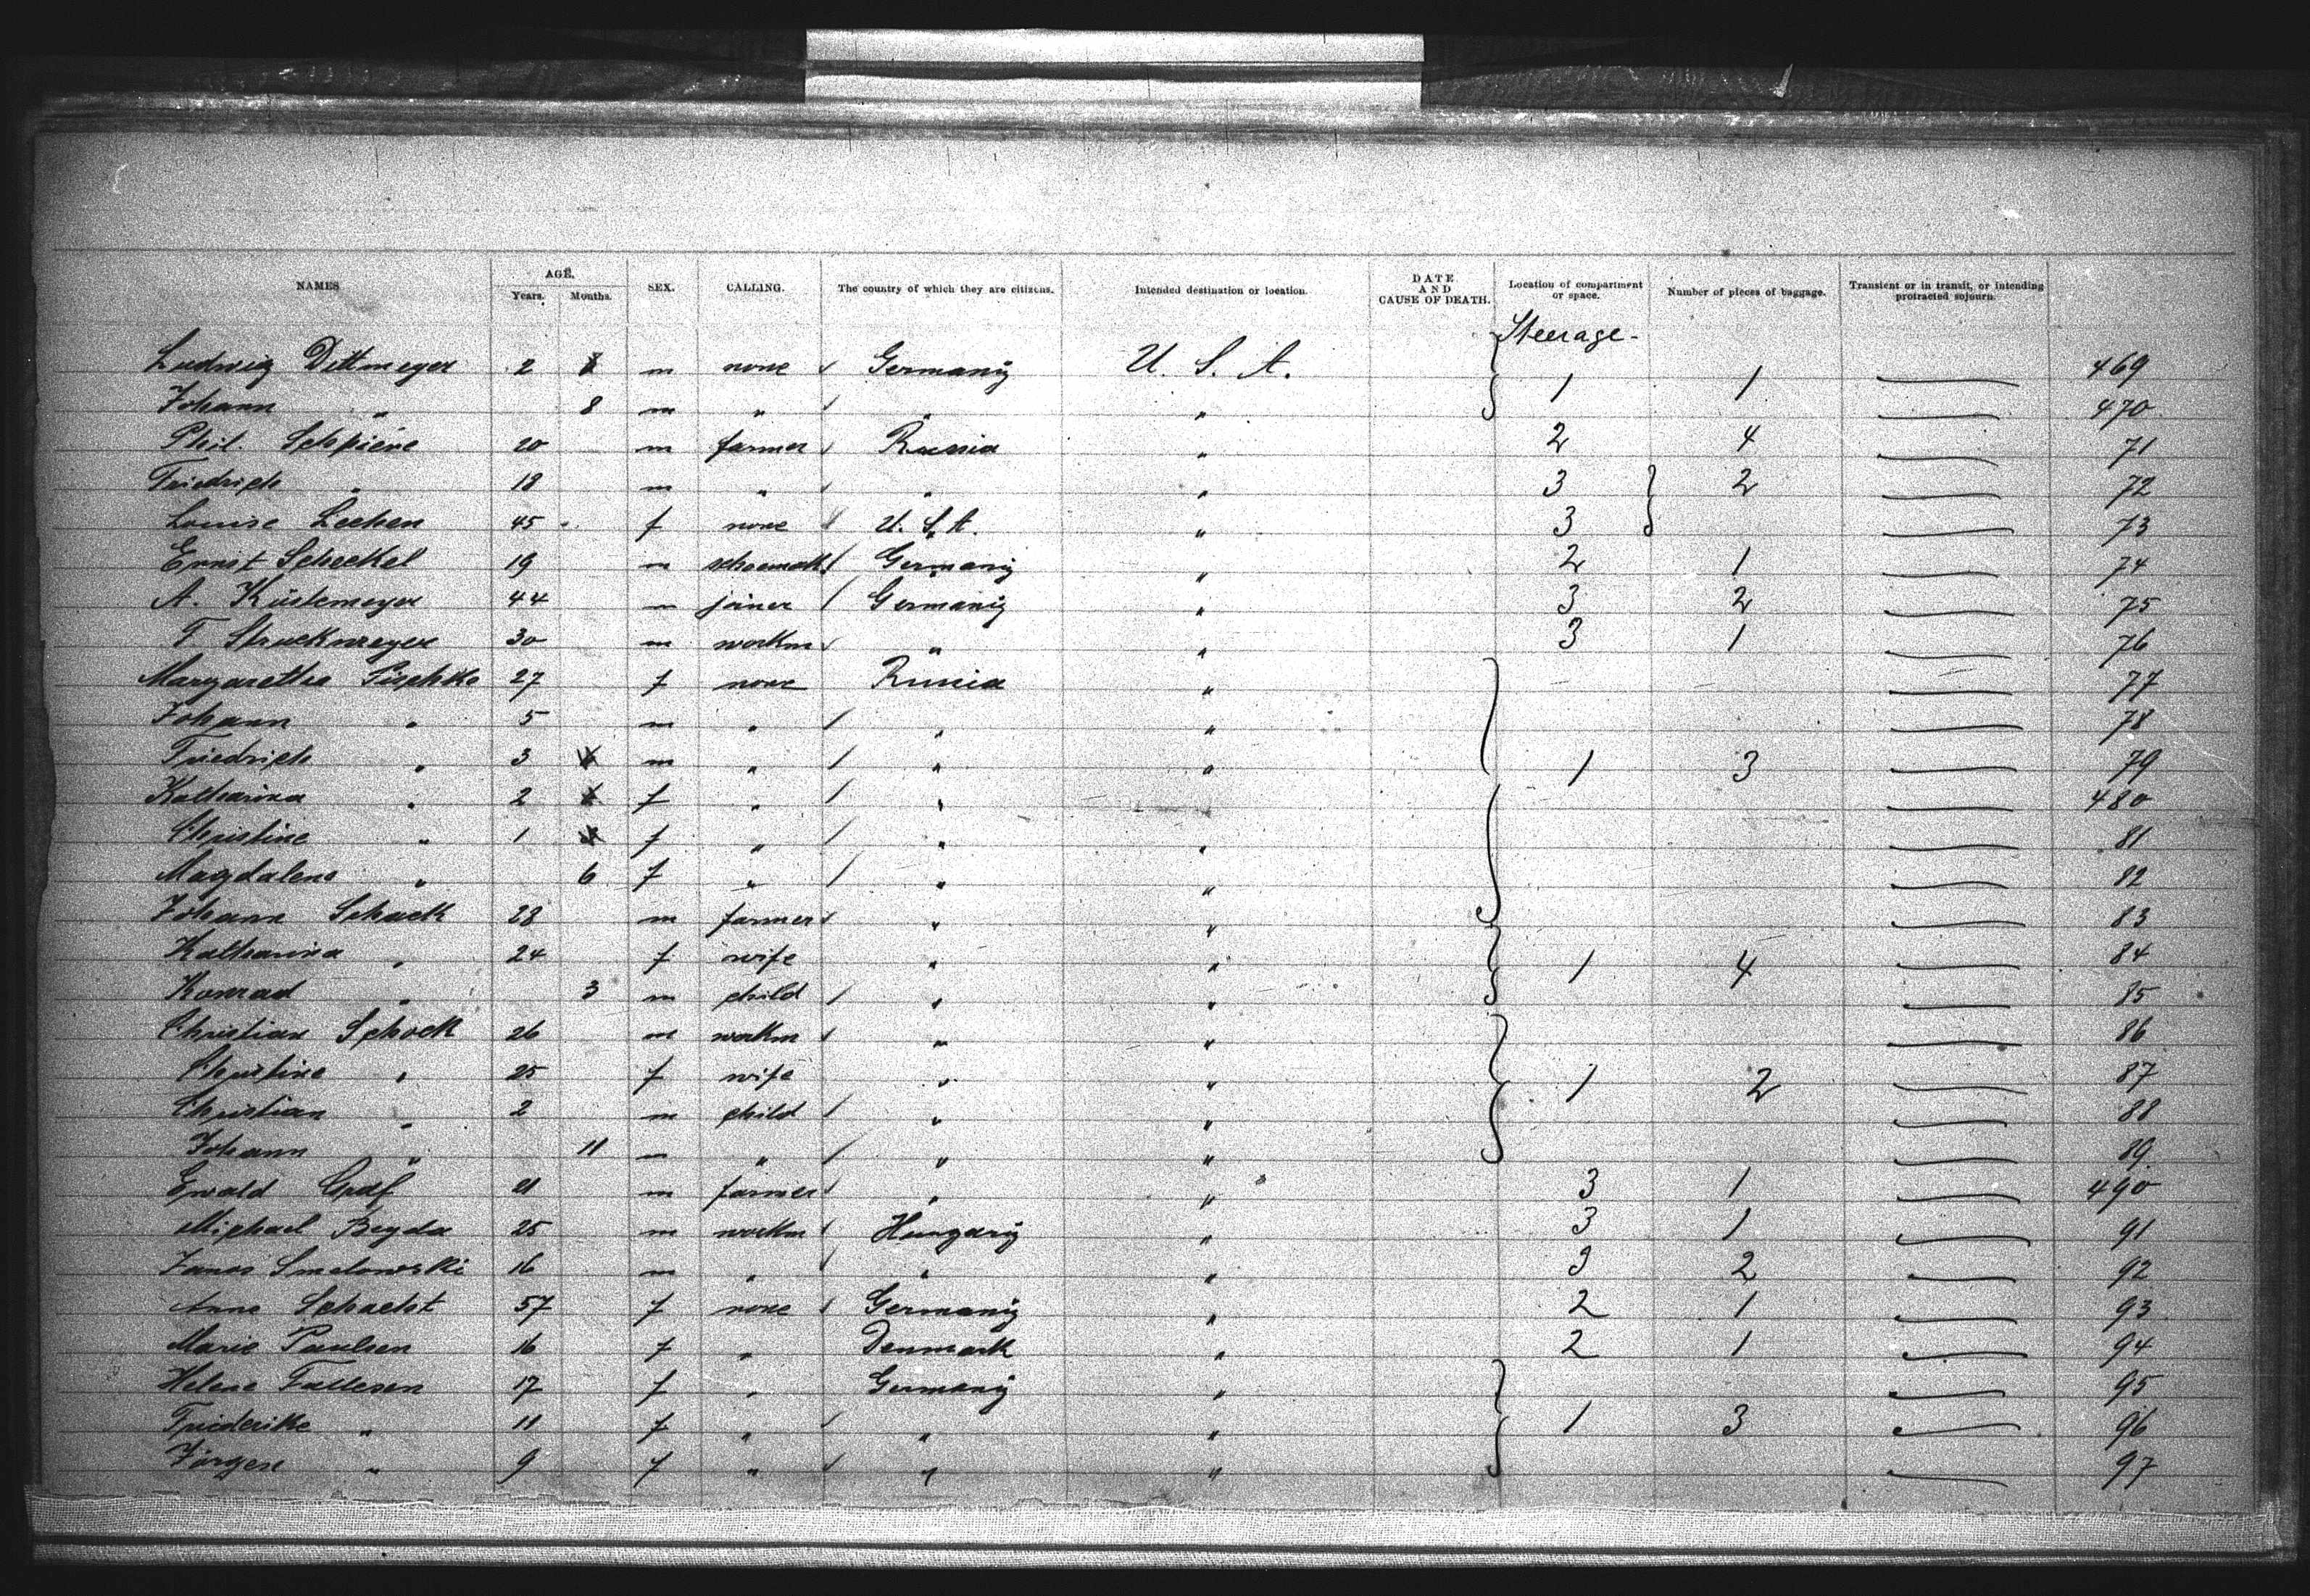 NAMES AGE. Years. Months. SEX. CALLING. The country of which they are citizens. Intended destination or location. DATE AND CAUSE OF DEATH. Location of compartment or space. Number of pieces of baggage. Transient or in transit, or intending protracted sojourn.
Steerage-
Ludwig Dettmeyer 2 m none Germany U. S. A. 1 1 469
Johann " 8 m " " " 470
Phil. 20 m farmer Russia " 2 4 71
Friedrich " 18 m " " " 3 2 72
Louise 45 f none U. S. A. " 3 73
Ernst Scheckel 19 m Germany " 2 1 74
A. Küstemeyer 44 m joiner Germany " 3 2 75
F 30 m workm " " 3 1 76
Margaretha 27 f none Russia " 77
Johann " 5 m " " " 78
Friedrich " 3 m " " " 1 3 79
Katharina " 2 f " " " 480
Christine " 1 f " " " 81
Magdalena " 6 f " " " 82
Johann Schack 28 m farmer " " 83
Katharina " 24 f wife " " 1 4 84
Konrad " 3 m child " " 85
Christian Schock 26 m workm " " 86
Christine " 25 f wife " " 1 2 87
Christian " 2 m child " " 88
Johann " 11 m " " " 89
Ewald Graf 21 m farmer " " 3 1 490
Michael Beyda 25 m workm Hungary " 3 1 91
Janos Smelowski 16 m " " " 3 2 92
Anna Schacht 57 f none Germany " 2 1 93
Marie Paulsen 16 f " Denmark " 2 1 94
Helene Fallesen 17 f " Germany " 95
Friederike " 11 f " " " 1 3 96
Jürgen " 9 f " " " 97